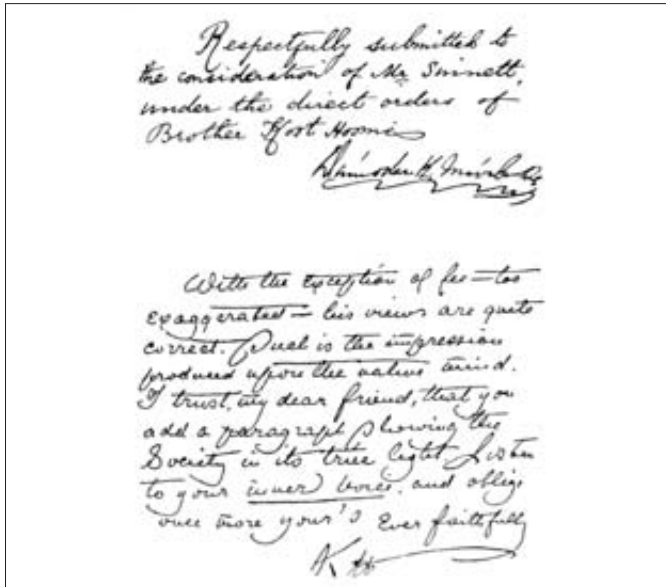 Respectfully submitted to
the consideration of Mr Sinnett,
under the direct orders of
Brother Koot Hoomi
Damodar K. Mavalankar
With the exception of fee — too
exaggerated — his views are quite
correct. Such is the impression
produced upon the native mind.
I trust, my dear friend, that you
add a paragraph showing the
Society in its true light. Listen
to your inner voice, and oblige
once more your's Ever faithfully
K H